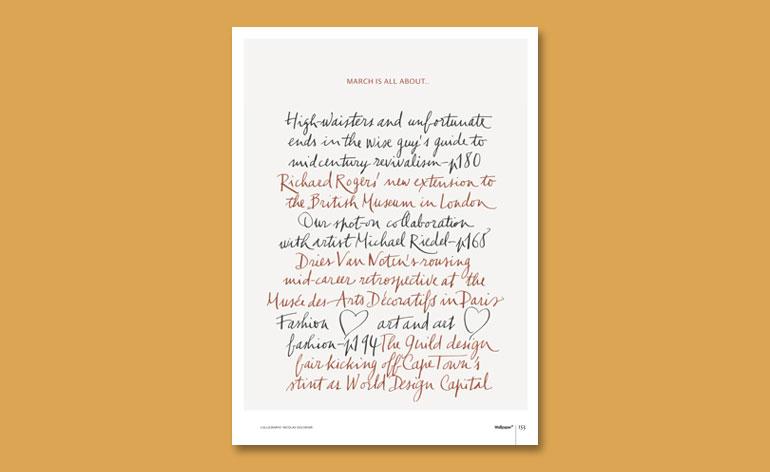 MARCH IS ALL ABOUT..
High-waisters and unfortunate
ends in the wise guy's guide to
midcentury revivalism–p180
Richard Rogers' new extension to
the British Museum in London
Our spot-on collaboration
with artist Michael Riedel–p168
Dries Van Noten's rousing
mid-career retrospective at the
Musée des Arts Décoratifs in Paris
Fashion ♡ art and art ♡
fashion–p194 The Guild design
fair kicking off Cape Town's
stint as World Design Capital
Wallpaper* | 153